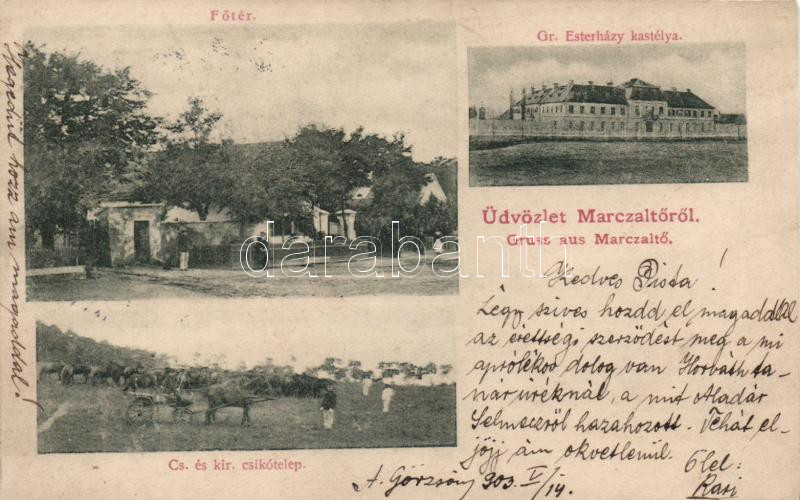 Főtér.
Gr. Esterházy kastélya.
Üdvözlet Marczaltőről.
Gruss aus Marczaltő.
darabanth
Kedves Pista!
Légy szives hozdd el magaddal
az érettségi szerződést meg a mi
aprólékos dolog van Horváth ta-
nár úréknál, a mit Aladár
Selmeczről hazahozott. Tehát el-
jöjj ám okvetlenül.
Ölel:
A. Görzsöny 903. V/14.
Cs. és kir. csikótelep.
Hegedűt hozz ám magaddal